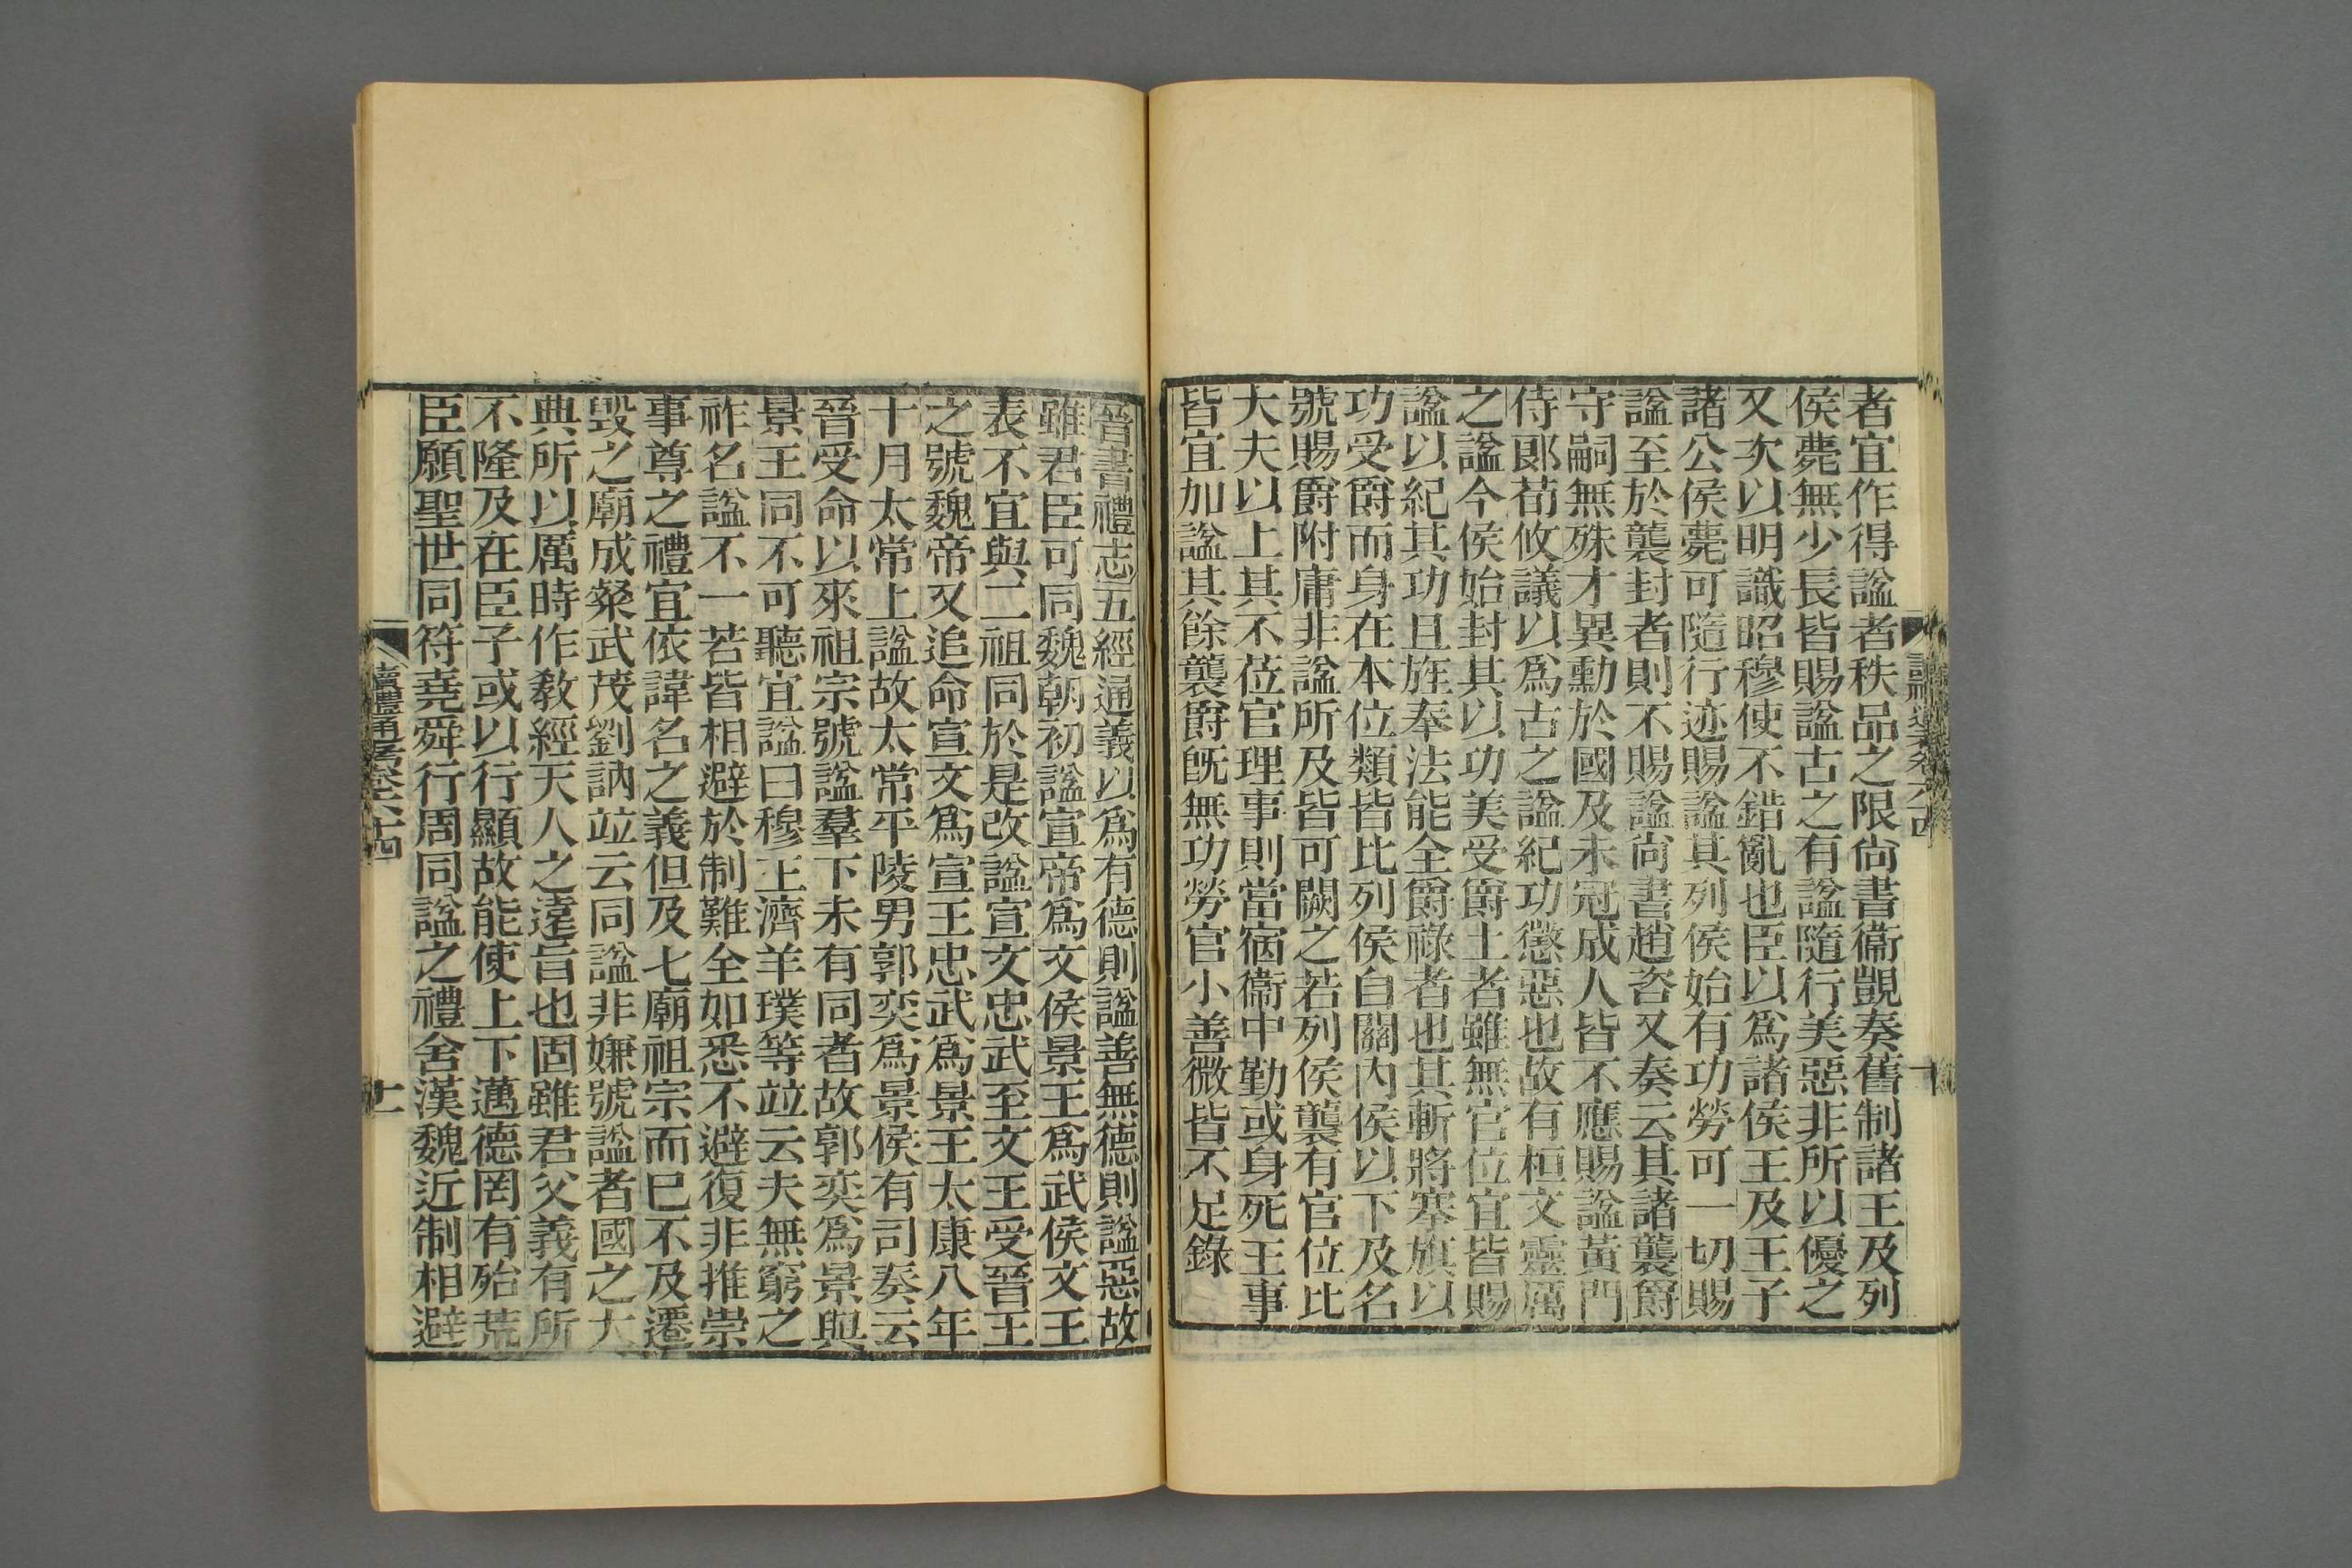 者宜作得諡者秩品之限尙書衞覬奏舊制諸王及列
侯薨無少長皆賜諡古之有諡隨行美惡非所以優之
又次以明識昭穆使不錯亂也臣以爲諸侯王及王子
諸公侯薨可隨行迹賜諡其列侯始有功勞可一切賜
諡至於襲封者則不賜諡尙書趙咨又奏云其諸襲爵
守嗣無殊才異勳於國及未冠成人皆不應賜諡黃門
侍郞荀攸議以爲古之諡紀功懲惡也故有桓文靈厲
之諡今侯始封其以功美受爵土者雖無官位宜皆賜
諡以紀其功且旌奉法能全爵祿者也其斬將搴旗以
功受爵而身在本位類皆比列侯自關內侯以下及名
號賜爵附庸非諡所及皆可闕之若列侯襲有官位比
大夫以上其不莅官理事則當宿衞中勤或身死王事
皆宜加諡其餘襲爵旣無功勞官小善微皆不足錄
晉書禮志五經通義以爲有德則諡善無德則諡惡故
雖君臣可同魏朝初諡宣帝爲文侯景王爲武侯文王
表不宜與二祖同於是改諡宣文忠武至文王受晉王
之號魏帝又追命宣文爲宣王忠武爲景王太康八年
十月太常上諡故太常平陵男郭奕爲景侯有司奏云
晉受命以來祖宗號諡羣下未有同者故郭奕爲景與
景王同不可聽宜諡曰穆王濟羊璞等竝云夫無窮之
祚名諡不一若皆相避於制難全如悉不避復非推崇
事尊之禮宜依諱名之義但及七廟祖宗而已不及遷
毀之廟成粲武茂劉訥竝云同諡非嫌號諡者國之大
典所以厲時作敎經天人之遠旨也固雖君父義有所
不隆及在臣子或以行顯故能使上下邁德罔有殆荒
臣願聖世同符堯舜行周同諡之禮舍漢魏近制相避
讀禮通考卷六十四
十一